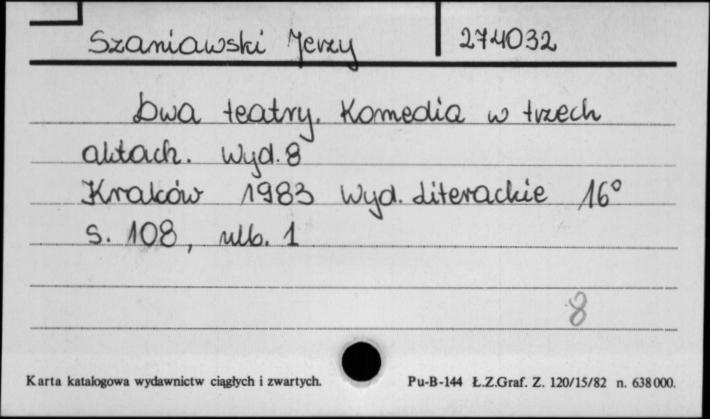 Szaniawski Jerzy 274032
Dwa teatry. Komedia w trzech
aktach. Wyd. 8
Kraków 1983 Wyd. Literackie 16°
s. 108, nlb. 1
8
Karta katalogowa wydawnictw ciągłych i zwartych. Pu-B-144 Ł.Z.Graf. Z. 120/15/82 n. 638000.